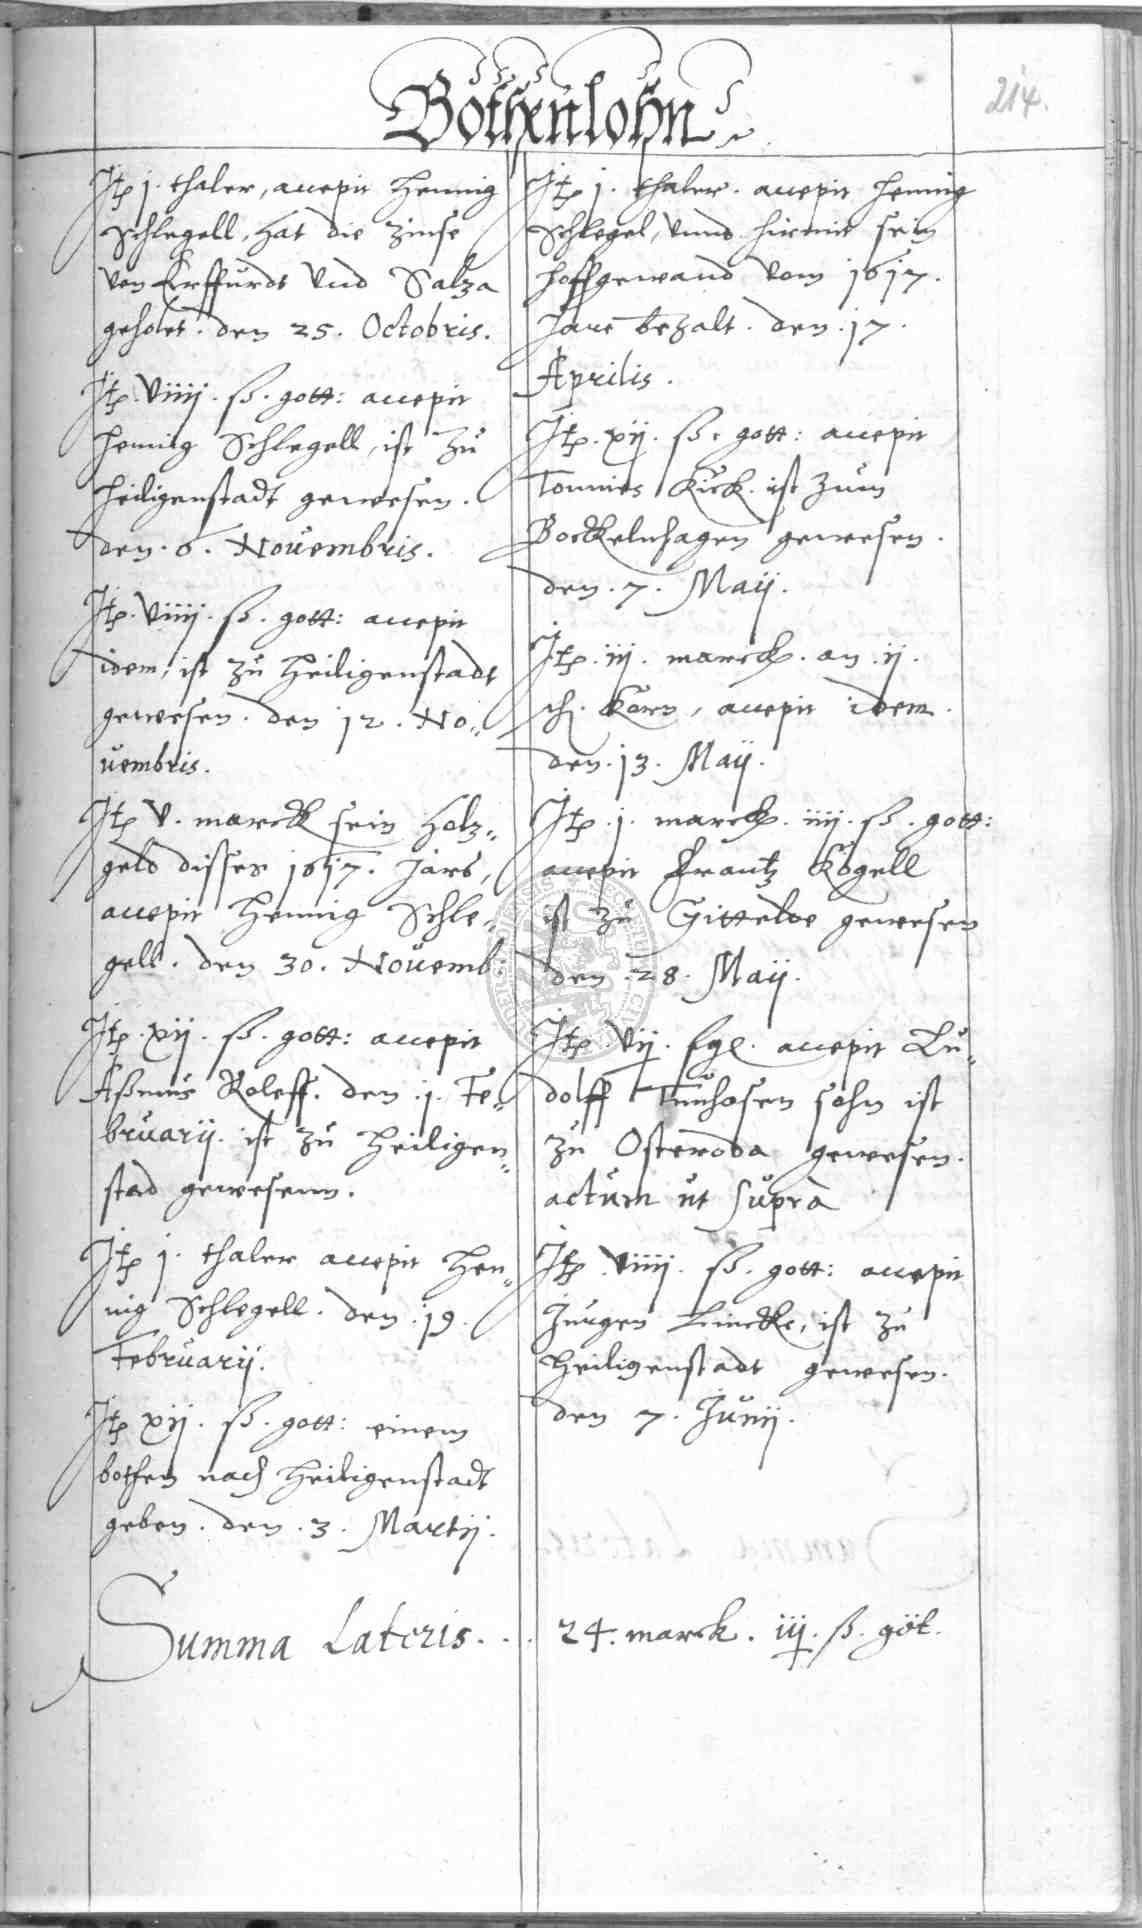 Bothenlohn
214.
Itp j. thaler, accepit Hennig
Schlegell, hat die Zinse
von Erffurdt Vnd Salza
geholet. den 25. Octobris.
Itp. viiij. ß. gott: accepit
Hennig Schlegell, ist zu
Heiligenstadt gewesen.
den. 6. Nouembris.
Itp. viiij. ß. gott: accepit
idem, ist zu Heiligenstadt
gewesen. den 12. No„
uembris.
Itp v. marck sein Holz„
geld disses 1617. Jars,
accepit Hennig Schle„
gell. den 30. Nouemb.
Itp. xij. ß. gott: accepit
Aßmus Roleff. den .j. Fe„
bruarij. ist zu Heiligen„
stad gewesenn.
Itp j. thaler accepit Hen„
nig Schlegell. den .19.
Februarij.
Itp xij. ß. gott: einem
bothen nach Heiligenstadt
geben. den .3. Martij.
Itp j. thaler. accepit Hennig
Schlegel, vnnd hiemit sein
Hoffgewand vom 1617.
Jare bezalt. den .17.
Aprilis.
Itp. xij. ß. gott: accepit
Tonnies Kück. ist zum
Bockelnhagen gewesen.
den. 7. Maij.
Itp. iij. marck. an .ij.
Korn, accepit idem.
den. 13. Maij.
Itp .j. marck. iiij. ß. gott:
accepit Frantz Kögell
ist zu Gittelde gewesen
den .28. Maij.
Itp. vij. fgl. accepit Lu„
dolff Tunhosen sohn ist
zu Osteroda gewesen.
actum ut supra
Itp viiij. ß. gott: accepit
Jurgen Lincke, ist zu
Heiligenstadt gewesen.
den 7. Junij.
Summa Lateris. . . 24. marck. iij. ß. göt.